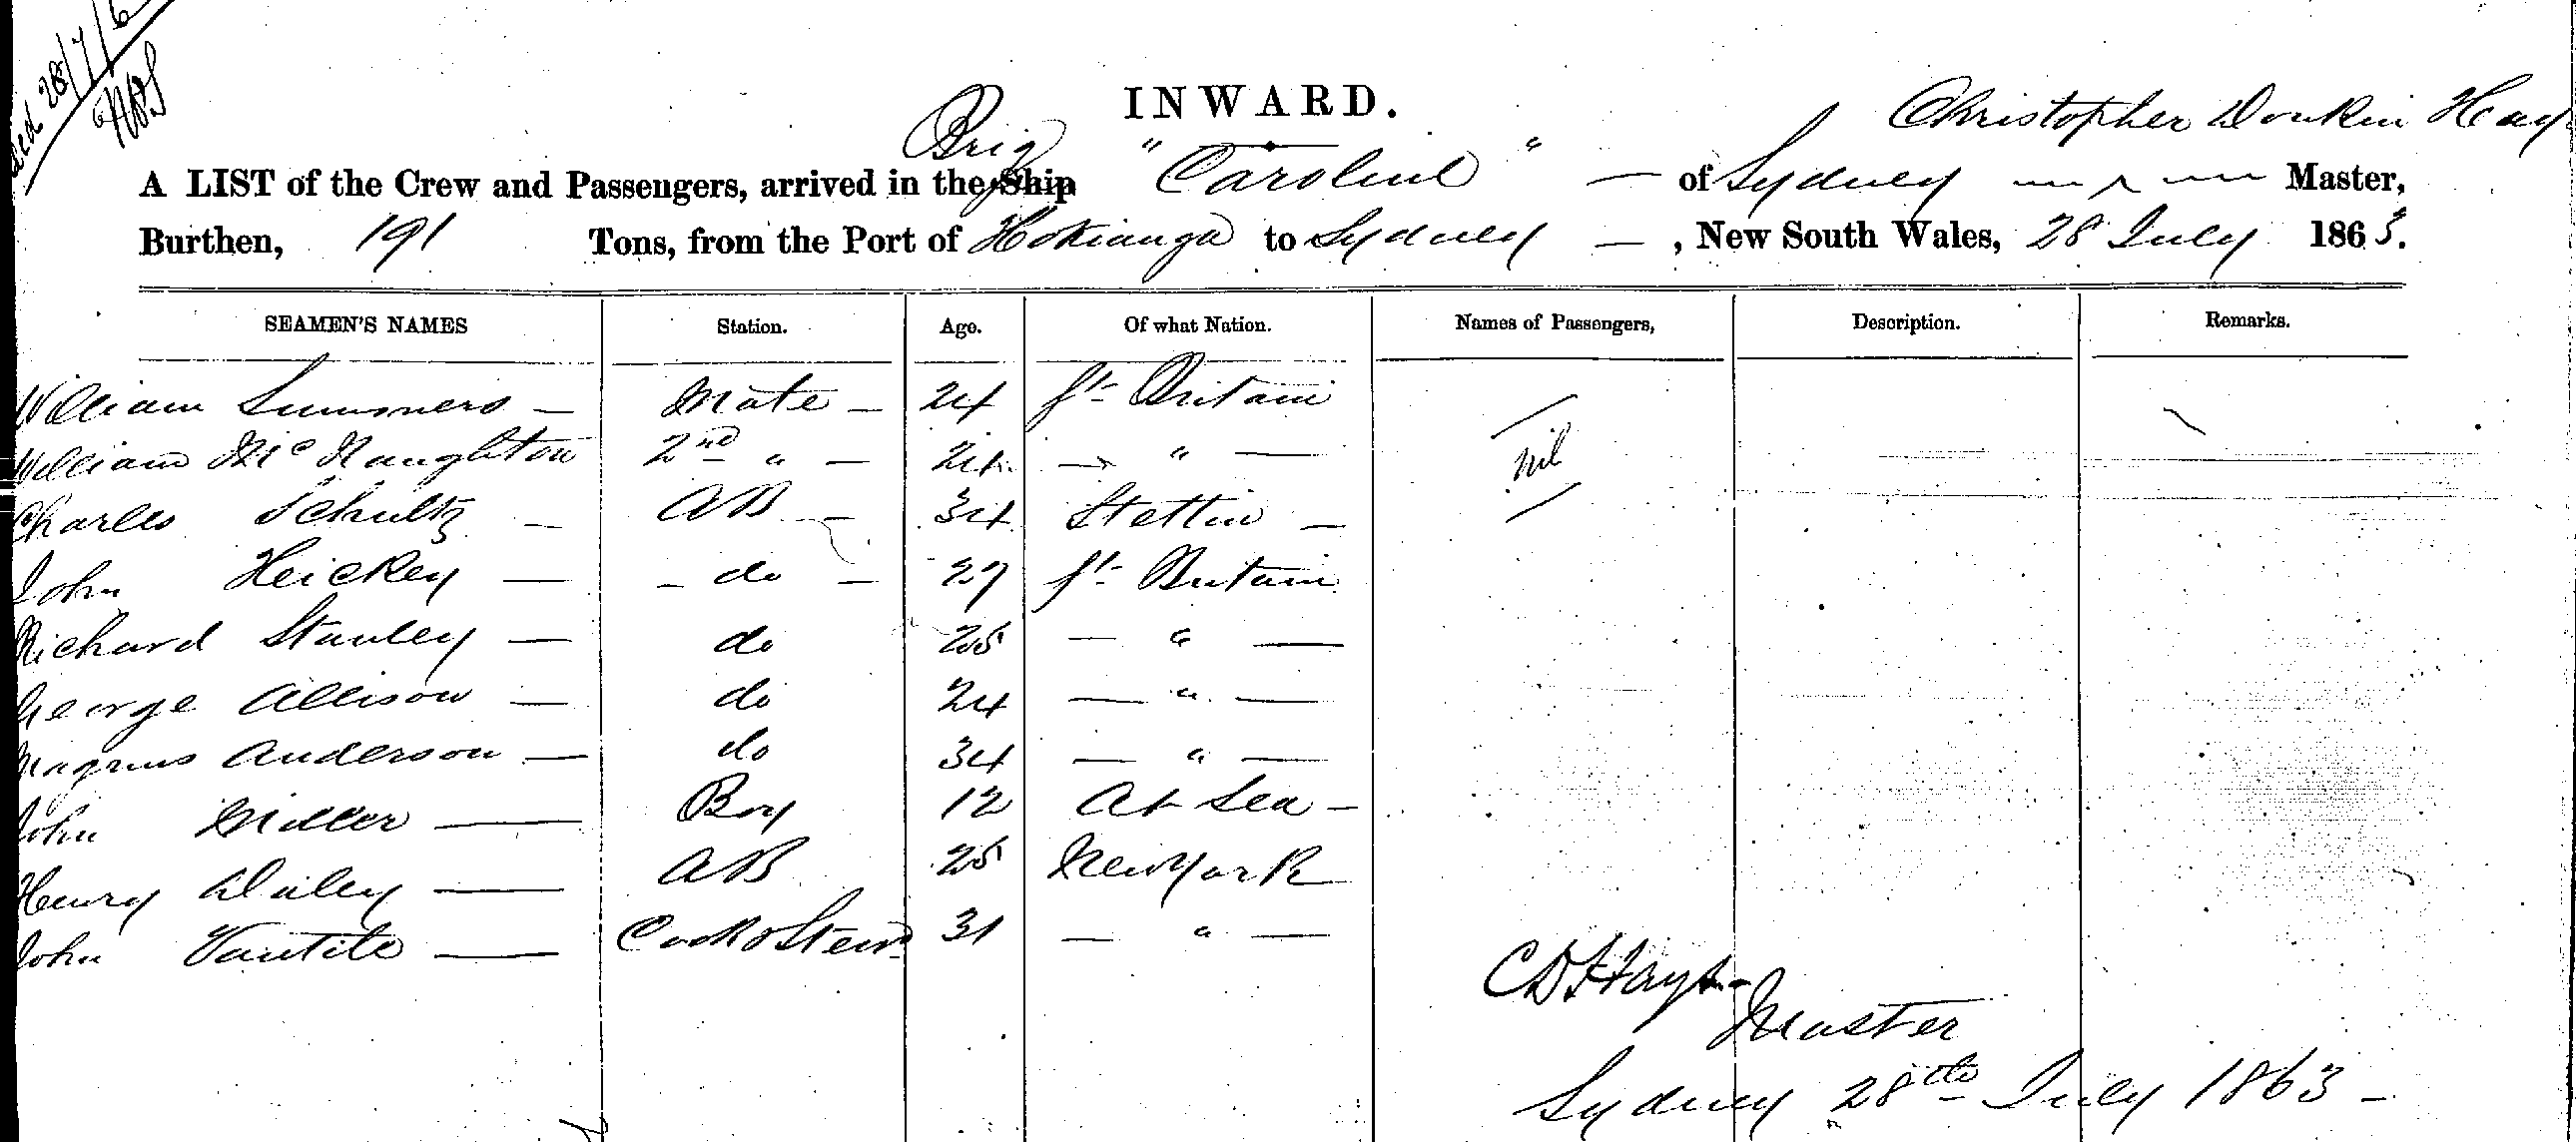 28/7/6
INWARD.
Christopher Donkin Hay
Brig
A LIST of the Crew and Passengers, arrived in the Ship "Caroline" — of Sydney Master,
Burthen, 191 Tons, from the Port of Hokianga to Sydney — , New South Wales, 28 July 1863.
SEAMEN'S NAMES Station. Age. Of what Nation. Names of Passengers, Description. Remarks.
William Summers — Mate — 24 Gt Britain
William McNaughton 2nd " — 24 — " — nil
Charles Schultz — AB — 34 Stettin —
John Heickey — — do — 27 Gt Britain
Richard Stanley — do 25 — " —
George Allison — do 24 — " —
Magnus Anderson — do 34 — " —
John Miller — Boy 12 At Sea —
Henry Daley — AB 25 New York
John Vantile — Cook & Stewd 31 — " —
CD Hays
Master
Sydney 28th July 1863 —